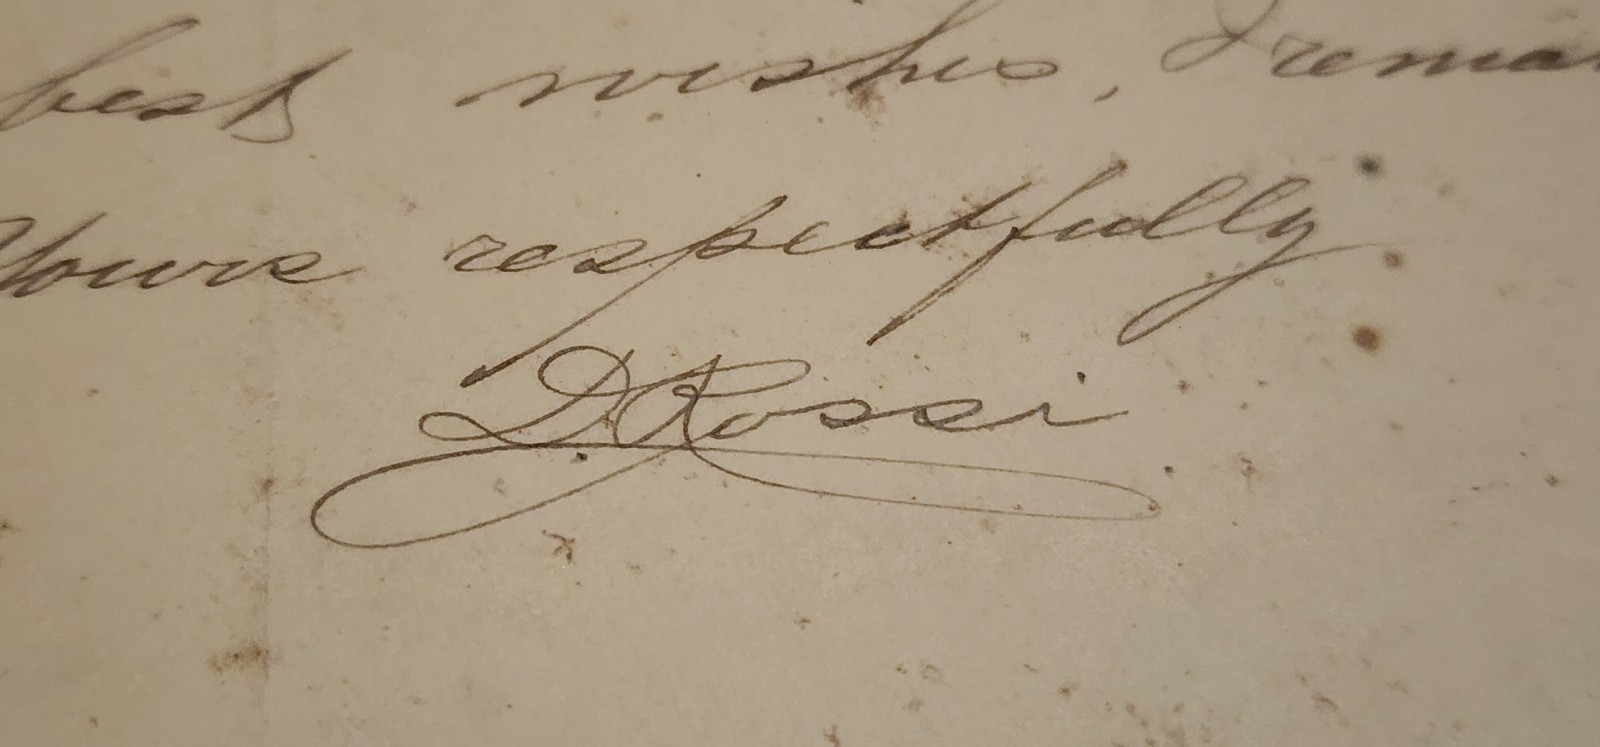 best wishes, I remai
Yours respectfully
D. Rossi